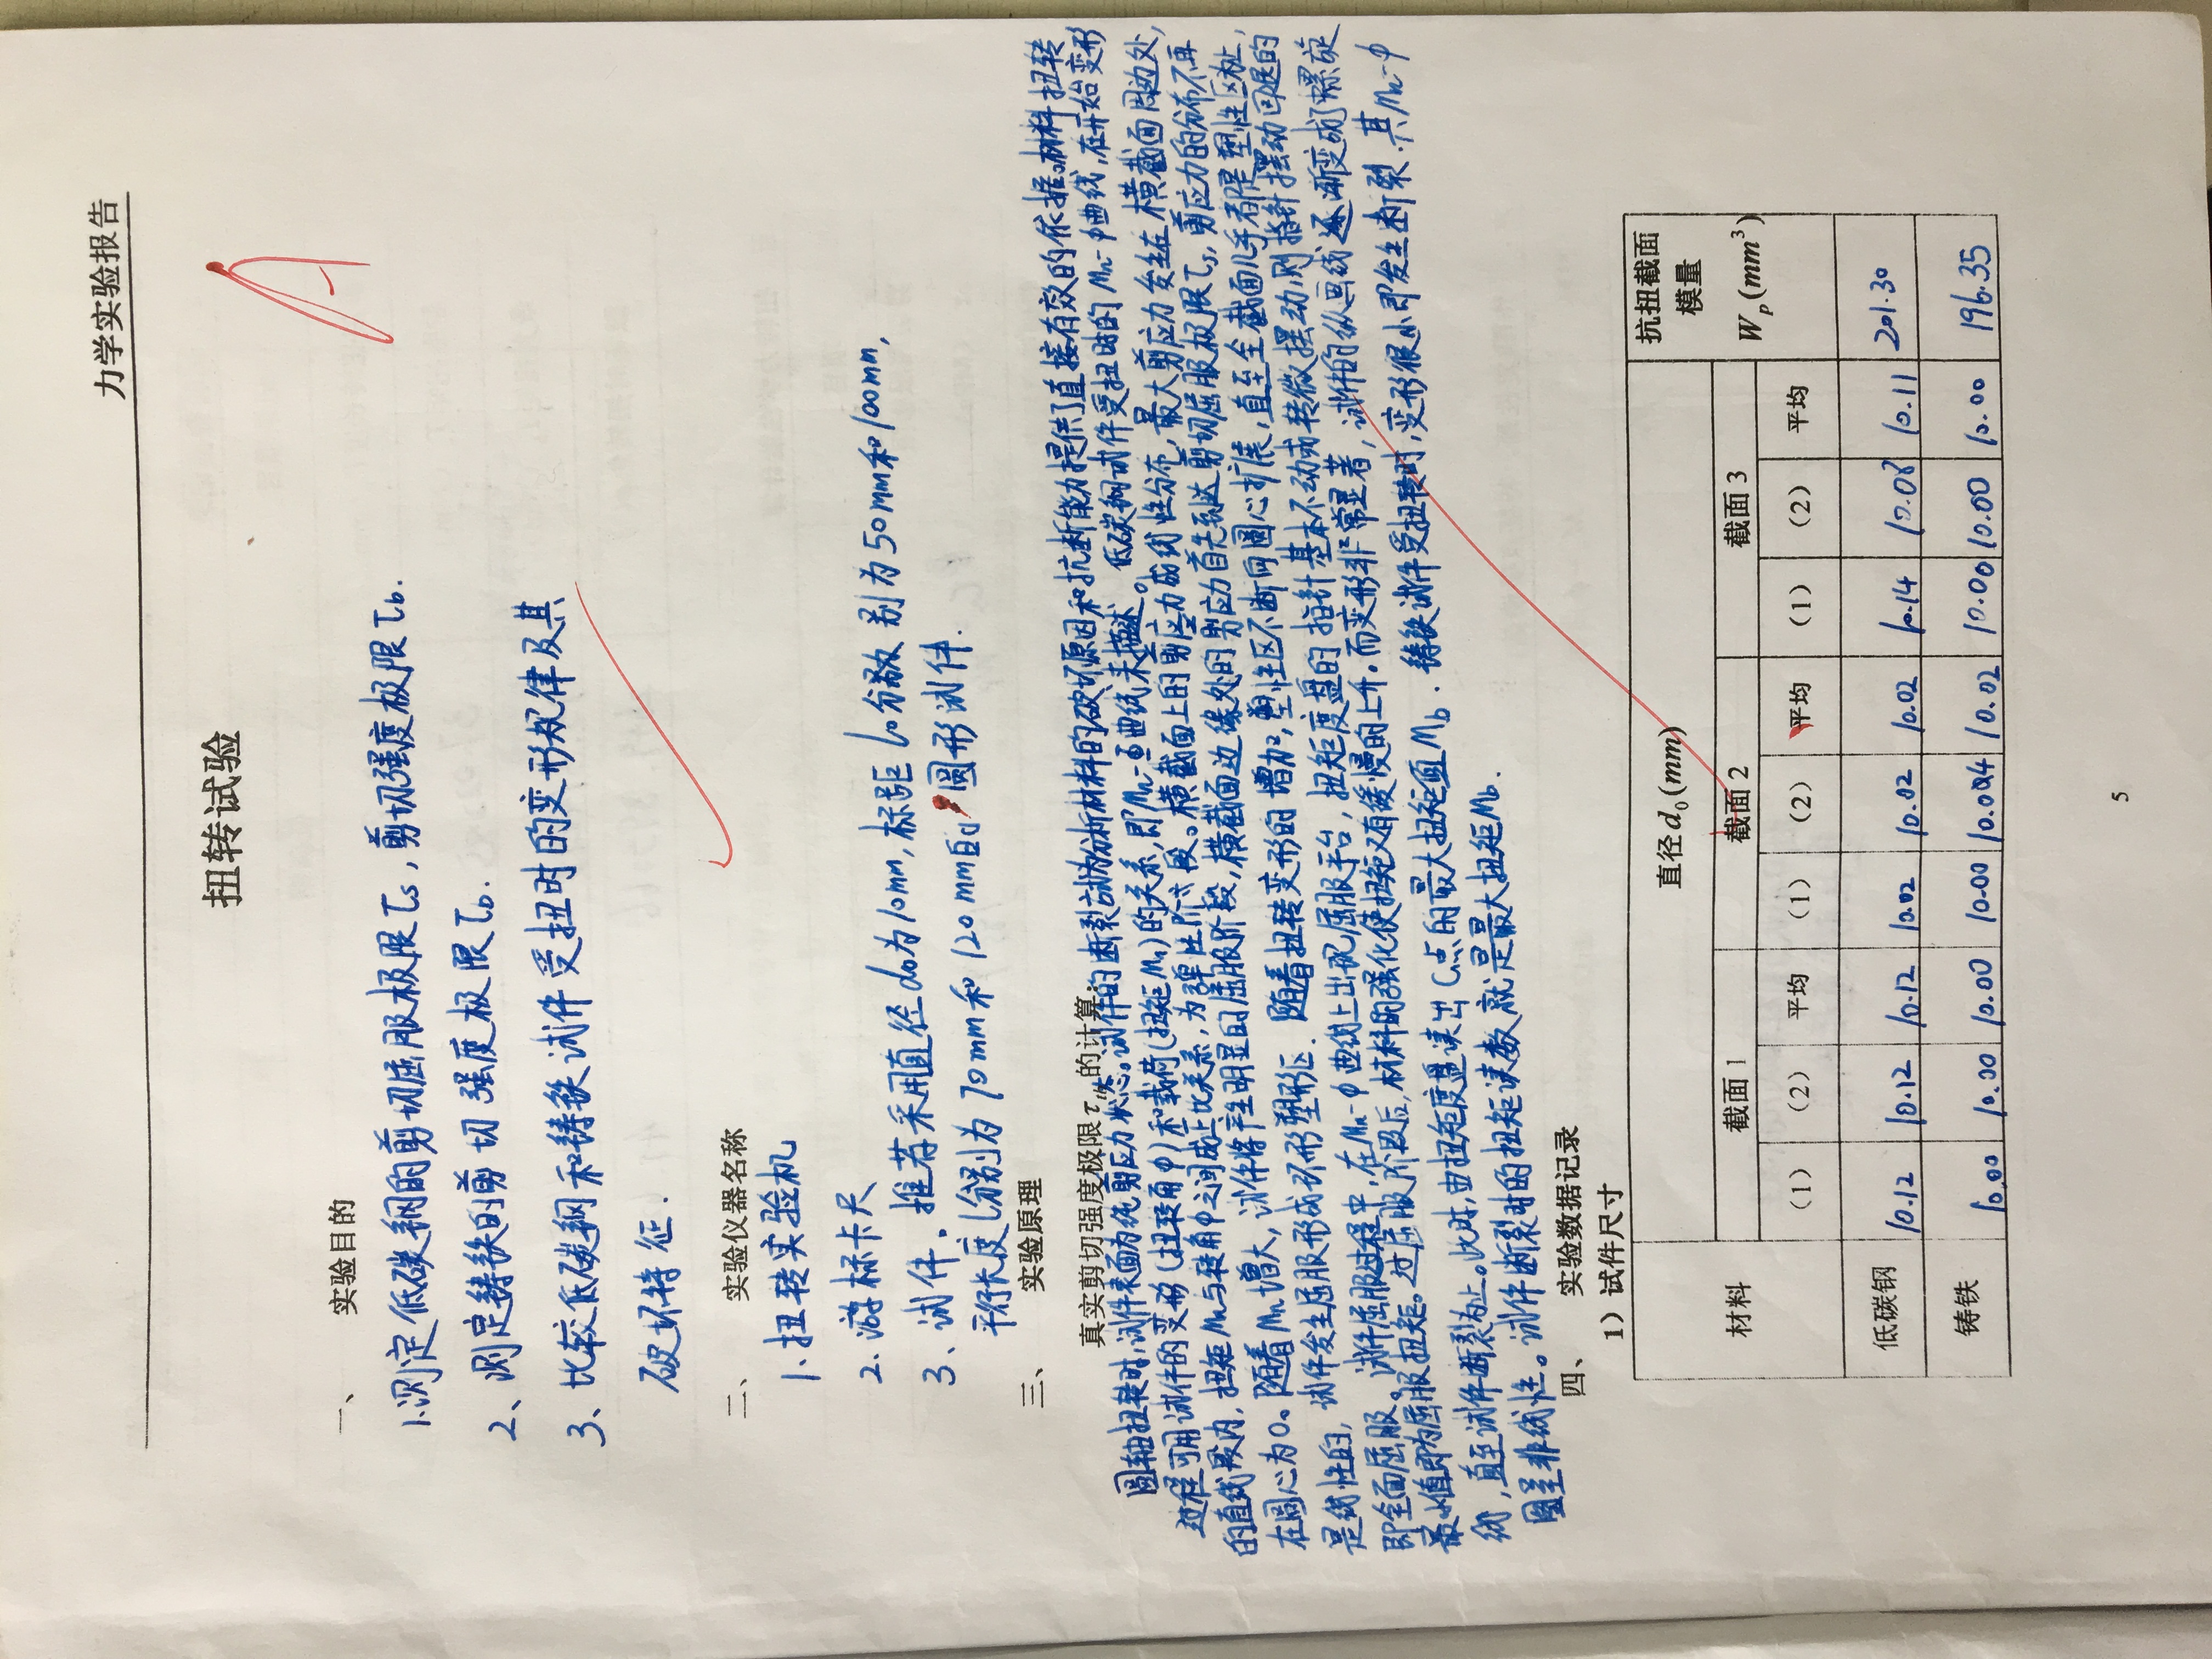 力学实验报告
扭转试验
一、 实验目的
1.测定低碳钢的剪切屈服极限τs,剪切强度极限τb.
2、测定铸铁的剪切强度极限τb.
3、比较低碳钢和铸铁试件受扭时的变形规律及其
破坏特征.
二、 实验仪器名称
1.扭转实验机
2.游标卡尺
3、试件.推荐采用直径d0为10mm,标距l0分别为50mm和100mm,
平行长度l分别为70mm和120mm的圆形试件.
三、 实验原理
真实剪切强度极限τ的计算:
圆轴扭转时,试件表面为纯剪应力状态。试件的断裂试为分析材料的破坏原因和抗断能力提供了直接有效的依据。材料扭转
过程可用试件的变形(扭转角φ)和载荷(扭矩Mn)的关系,即Mn-φ曲线来描述。低碳钢试件受扭时的Mn-φ曲线,在开始变形
的直线段内,扭矩Mn与转角φ之间成正比关系,为弹性阶段。横截面上的剪应力成线性分布,最大剪应力发生在横截面周边处,
在圆心为0。随着Mn增大,试件将产生明显的屈服阶段,横截面边缘处的剪应力首先到达剪切屈服极限τs,剪应力的分布不再
是线性的,试件发生屈服形成环形塑形区.随着扭转变形的增加,塑性区不断向圆心扩展,直至全截面几乎都是塑性区为止,
即全面屈服。试件屈服过程中,在Mn-φ曲线上出现屈服平台,扭矩度盘的指针基本不动或转微摆动,则指针摆动回退的
最小值即为屈服扭矩。过屈服阶段后,材料的强化使扭矩又有缓慢的上升.而变形非常显著,试件的纵回线逐渐变成了螺旋
线,直至试件断裂为止。此时,由扭矩度盘读出C点的最大扭矩值Mb.铸铁试件受扭转时,变形很小即发生断裂.其Mn-φ
图呈非线性。试件断裂时的扭矩读数就是最大扭矩Mb.
四、 实验数据记录
1)试件尺寸
材料 直径d0(mm) 抗扭截面模量 Wp(mm3)
截面1 截面2 截面3
(1) (2) 平均 (1) (2) 平均 (1) (2) 平均
低碳钢 10.12 10.12 10.12 10.02 10.02 10.02 10.14 10.08 10.11 201.30
铸铁 10.00 10.00 10.00 10.00 10.04 10.02 10.00 10.00 10.00 196.35
5